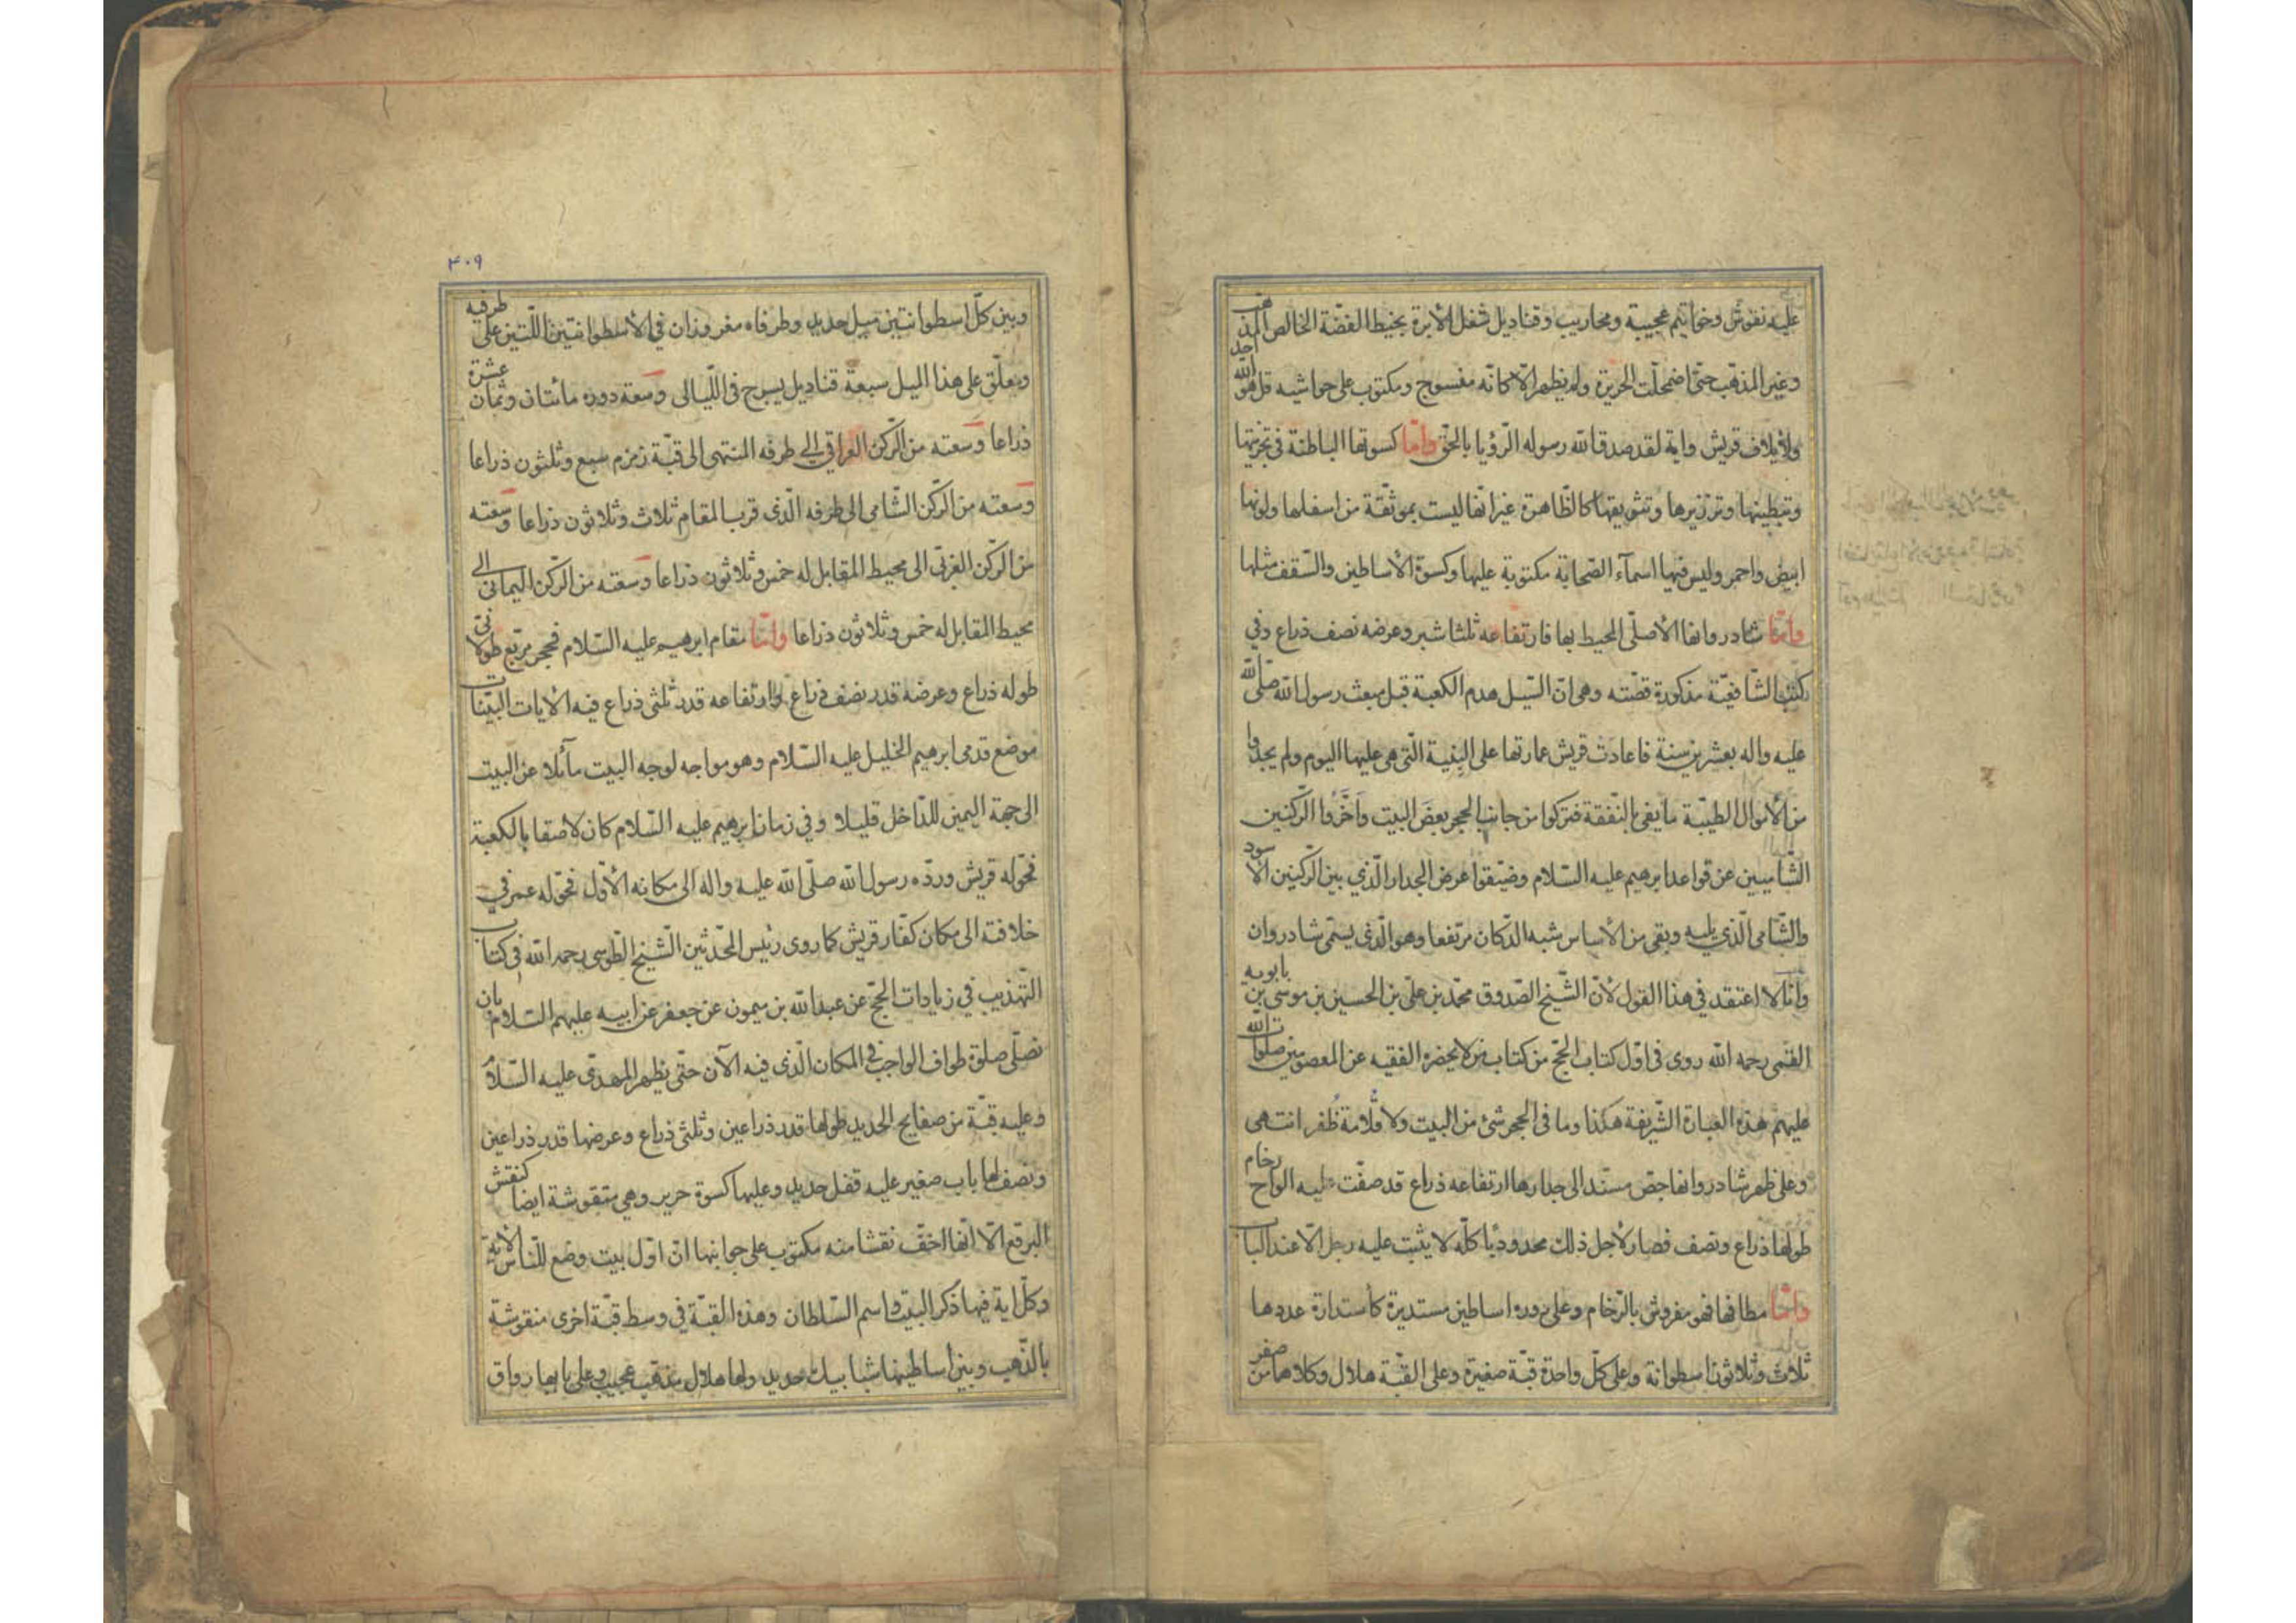 عليه نقوش وخواتيم عجيبة ومحاريب وقناديل شغل الأبرة بخيط الفضّة الخالص المذهّب
وغير المذهّب حتّى اضمحلّت الحريرة ولم يظهر الّا كانّه مفسوج ومكتوب على حواشيه قل هو الله احد
ولأيلاف قريش واية لقد صدق الله رسوله الرّؤيا بالحقّ وامّا كسوتها الباطنة فى تجزيتها
وتبطينها وتزريرها وتشويقها كالظّاهرة غير انّها ليست بموثّقة من اسفلها ولونها
ابيض واحمر وليس فيها اسمآء الصّحابة مكتوبة عليها وكسوة الأساطين والسّقف مثلها
وامّا شادروانها الأصلّى المحيط بها فارتفاعه ثلثا شبر وعرضه نصف ذراع وفي
كتب الشّافعيّة مذكورة قصّته وهى انّ السّيل هدم الكعبة قبل مبعث رسول الله صلّى الله
عليه واله بعشرين سنة فاعادت قريش عمارتها على البنية الّتى هى عليها اليوم ولم يجدوا
من الأموال الطيّبة ما يفى بالنّفقة فتركوا من جانب الحجر بعض البيت واخّروا الرّكنين
الشّاميين عن قواعد ابرهيم عليه السّلام وضيّقوا عرض الجدار الّذي بين الرّكنين الأسود
والشّامى الّذي يليه وبقى من الأساس شبه الدّكان مرتفعا وهو الّذى يسمّى شادروان
وانا لا اعتقد في هذا القول لأنّ الشّيخ الصّدوق محمّد بن علىّ بن الحسين بن موسى بن بابويه
القمّى رحمه الله روى فى اوّل كتاب الحجّ من كتاب من لا يحضره الفقيه عن المعصومين صلوات الله
عليهم هذه العبارة الشّريفة هكذا وما فى الحجر شئ من البيت ولا قُلامة ظُفر انتهى
وعلى ظهر شادروانها جصّ مستّد الى جدارها ارتفاعه ذراع قد صفّت عليه الواح رخام
طولها ذراع ونصف فصار لأجل ذلك محدودبًا كلّه لا يثبت عليه رجل الّا عند الباب
وامّا مطافها فهو مفروش بالرّخام وعلى دوره اساطين مستديرة كأستدارة عددها
ثلاث وثلاثون اسطوانة وعلى كلّ واحدة قبّة صغيرة وعلى القبّة هلال وكلاهما من صفر
٤٠٩
وبين كلّ اسطوانتين ميل حديد وطرفاه مغروزان في الأسطوانتين اللّتين على طرفيه
ومعلّق على هذا الميل سبعة قناديل يسرج فى اللّيالى وسعة دوره مائتان وثمان عشرة
ذراعا وسعته من الرّكن العراقي الى طرفه المنتهى الى قبّة زمزم سبع وثلثون ذراعا
وسعته من الرّكن الشّامى الى طرفه الّذى قرب المقام ثلاث وثلاثون ذراعا وسعته
من الرّكن الغربّى الى محيط المقابل له خمس وثلاثون ذراعا وسعته من الرّكن اليمانى الى
محيط المقابل له خمس وثلاثون ذراعا وامّا مقام ابرهيم عليه السّلام فحجر مربّع طولانّى
طوله ذراع وعرضه قدر نصف ذراع وارتفاعه قدر ثلثى ذراع فيه الايات البيّنات
موضع قدمى ابرهيم الخليل عليه السّلام وهو مواجه لوجه البيت مآئلا عن البيت
الى جهة اليمين للدّاخل قليلا وفي زمان ابرهيم عليه السّلام كان لاصقا بالكعبة
فحوّله قريش وردّه رسول الله صلّى الله عليه واله الى مكانه الأوّل فحوّله عمر في
خلافته الى مكان كفّار قريش كما روى رئيس المحدّثين الشّيخ الطّوسى رحمه الله فى كتاب
التّهذيب في زيادات الحجّ عن عبد الله بن ميمون عن جعفر عن ابيه عليهم السّلام بان
نصلّى صلوة طواف الواجب فى المكان الّذى فيه الآن حتّى يظهر المهدّى عليه السّلام
وعليه قبّة من صفايح الحديد طولها قدر ذراعين وثلثى ذراع وعرضها قدر ذراعين
ونصف لها باب صغير عليه قفل حديد وعليها كسوة حرير وهي منقوشة ايضا كنقش
البرقع الّا انّها اخفّ نقشا منه مكتوب على جوانبها انّ اوّل بيت وضع للنّاس الاية
وكلّ اية فيها ذكر البيت واسم السّلطان وهذه القبّة في وسط قبّة اخرى منقوشة
بالذّهب وبين اساطينها شبابيك حديد ولها هلال مذهّب عجيب وعلى بابها رواق